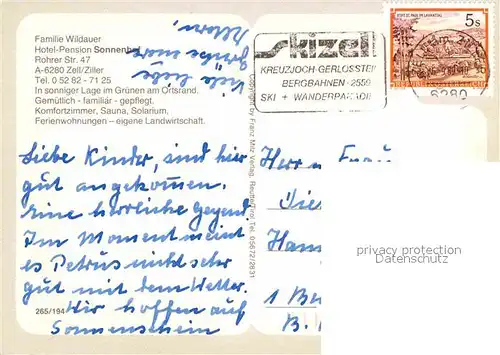 Familie Wildauer
Hotel-Pension Sonnenhof
Rohrer Str. 47
A-6280 Zell/Ziller
Tel. 0 52 82 - 71 25
In sonniger Lage im Grünen am Ortsrand.
Gemütlich - familiär - gepflegt.
Komfortzimmer, Sauna, Solarium,
Ferienwohnungen – eigene Landwirtschaft.
Viele liebe
Grüße
Liebe Kinder, sind hier
gut angekommen.
Eine herrliche Gegend.
Im Moment meint
es Petrus nicht sehr
gut mit dem Wetter.
Wir hoffen auf
Sonnenschein
265/194
Copyright by Franz Milz Verlag, Reutte/Tirol Tel. 05672/2831
skizell
KREUZJOCH-GERLOSSTEI
BERGBAHNEN · 2559
SKI + WANDERPARADIE
5s
6280
Herrn u. Frau
Die
Han
1 Bu
B.
privacy protection
Datenschutz